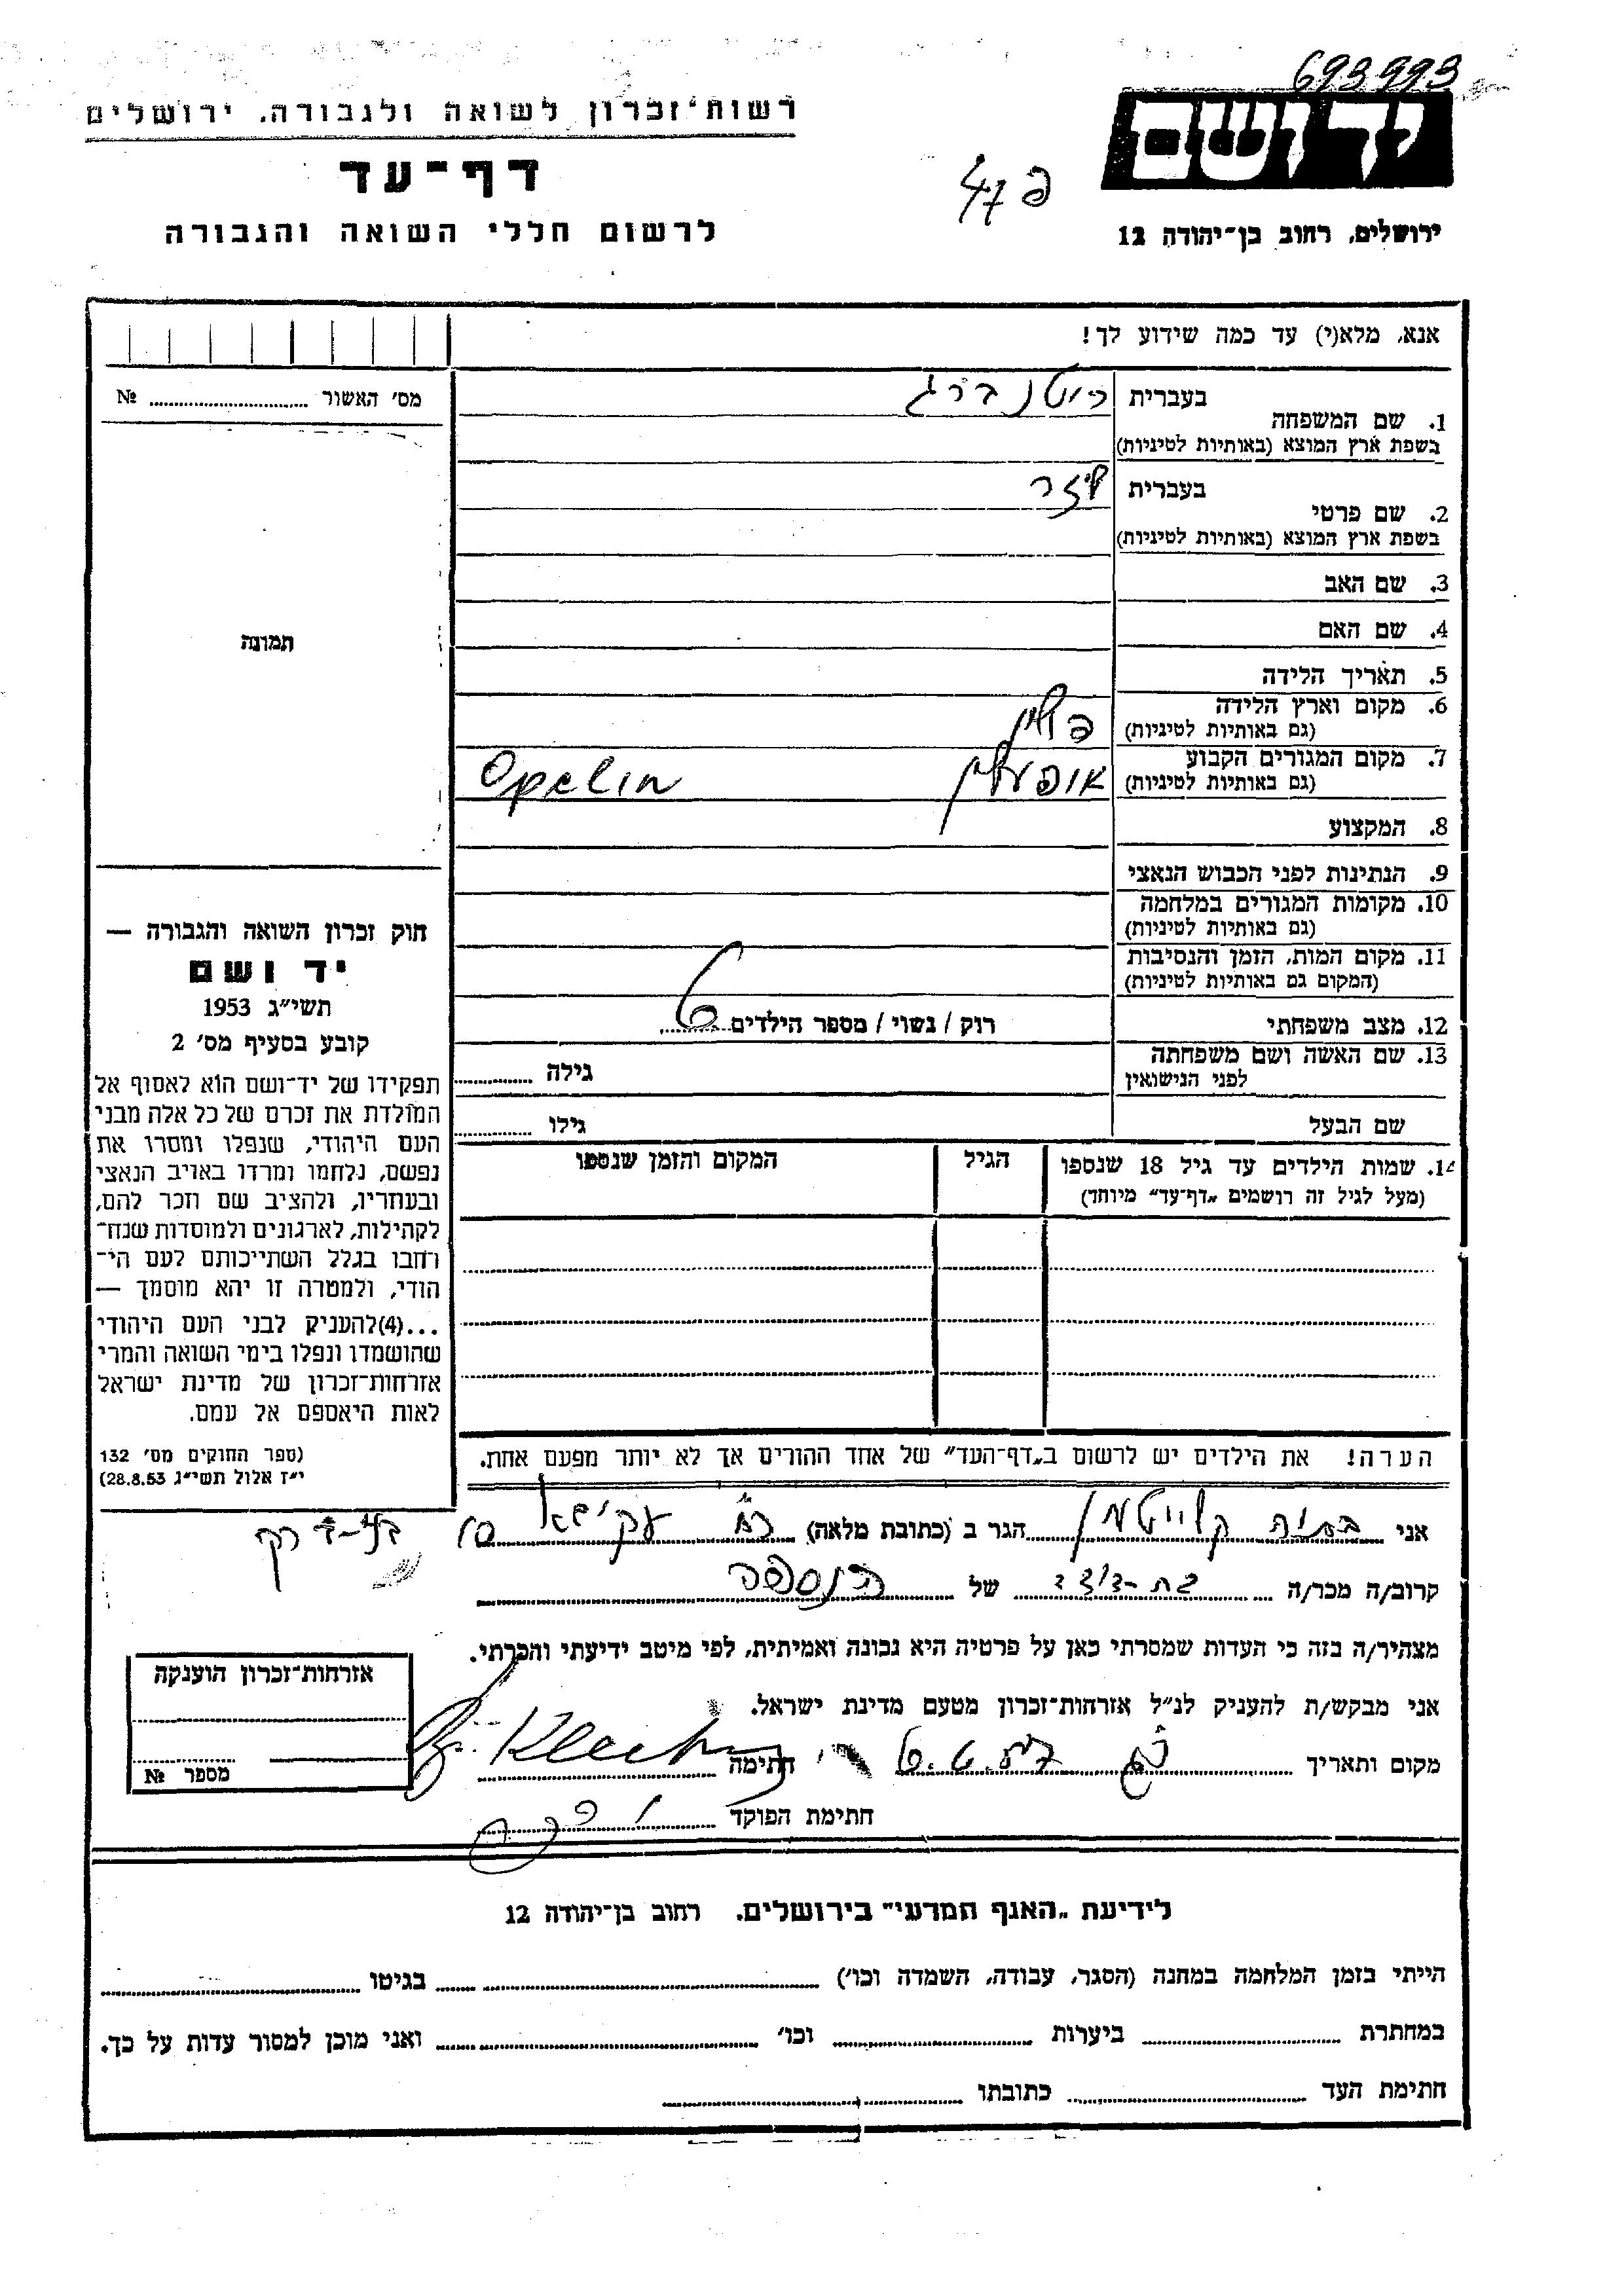 693993
רשות זכרון לשואה ולגבורה, ירושלים
ידושם
דף-עד
פ 47
לרשום חללי השואה והגבורה
ירושלים, רחוב בן-יהודה 12
אנא, מלא(י) עד כמה שידוע לך!
מס' האשור № 
1. שם המשפחה
בעברית רוטנברג
בשפת ארץ המוצא (באותיות לטיניות)
2. שם פרטי
בעברית
בשפת ארץ המוצא (באותיות לטיניות)
3. שם האב
4. שם האם
תמונה
5. תאריך הלידה
6. מקום וארץ הלידה
(גם באותיות לטיניות) פולין
7. מקום המגורים הקבוע
(גם באותיות לטיניות) אופעלין Opelin
8. המקצוע
9. הנתינות לפני הכבוש הנאצי
10. מקומות המגורים במלחמה
(גם באותיות לטיניות)
11. מקום המות, הזמן והנסיבות
(המקום גם באותיות לטיניות)
12. מצב משפחתי רוק / נשוי / מספר הילדים 6
13. שם האשה ושם משפחתה
לפני הנישואין
גילה
שם הבעל גילו
14. שמות הילדים עד גיל 18 שנספו
(מעל לגיל זה רושמים "דף-עד" מיוחד)
הגיל
המקום והזמן שנספו
חוק זכרון השואה והגבורה —
יד ושם
תשי"ג 1953
קובע בסעיף מס' 2
תפקידו של יד-ושם הוא לאסוף אל
המולדת את זכרם של כל אלה מבני
העם היהודי, שנפלו ומסרו את
נפשם, נלחמו ומרדו באויב הנאצי
ובעוזריו, ולהציב שם וזכר להם,
לקהילות, לארגונים ולמוסדות שנח-
רחבו בגלל השתייכותם לעם הי-
הודי, ולמטרה זו יהא מוסמך —
...(4)להעניק לבני העם היהודי
שהושמדו ונפלו בימי השואה והמרי
אזרחות-זכרון של מדינת ישראל
לאות היאספם אל עמם.
(ספר החוקים מס' 132
י"ז אלול תשי"ג 28.8.53)
הערה! את הילדים יש לרשום ב"דף-העד" של אחד ההורים אך לא יותר מפעם אחת.
אני בתיה קלייטמן הגר ב (כתובת מלאה) רח עקיבא 10 בני-ברק
קרוב/ה מכר/ה בת-דודה של הנספה
מצהיר/ה בזה כי העדות שמסרתי כאן על פרטיה היא נכונה ואמיתית, לפי מיטב ידיעתי והכרתי.
אני מבקש/ת להעניק לנ"ל אזרחות-זכרון מטעם מדינת ישראל.
מקום ותאריך חתימה
חתימת הפוקד
אזרחות-זכרון הוענקה
מספר №
לידיעת "האגף המדעי" בירושלים, רחוב בן-יהודה 12
הייתי בזמן המלחמה במחנה (הסגר, עבודה, השמדה וכו') בגיטו
במחתרת ביערות וכו' ואני מוכן למסור עדות על כך.
חתימת העד כתובתו